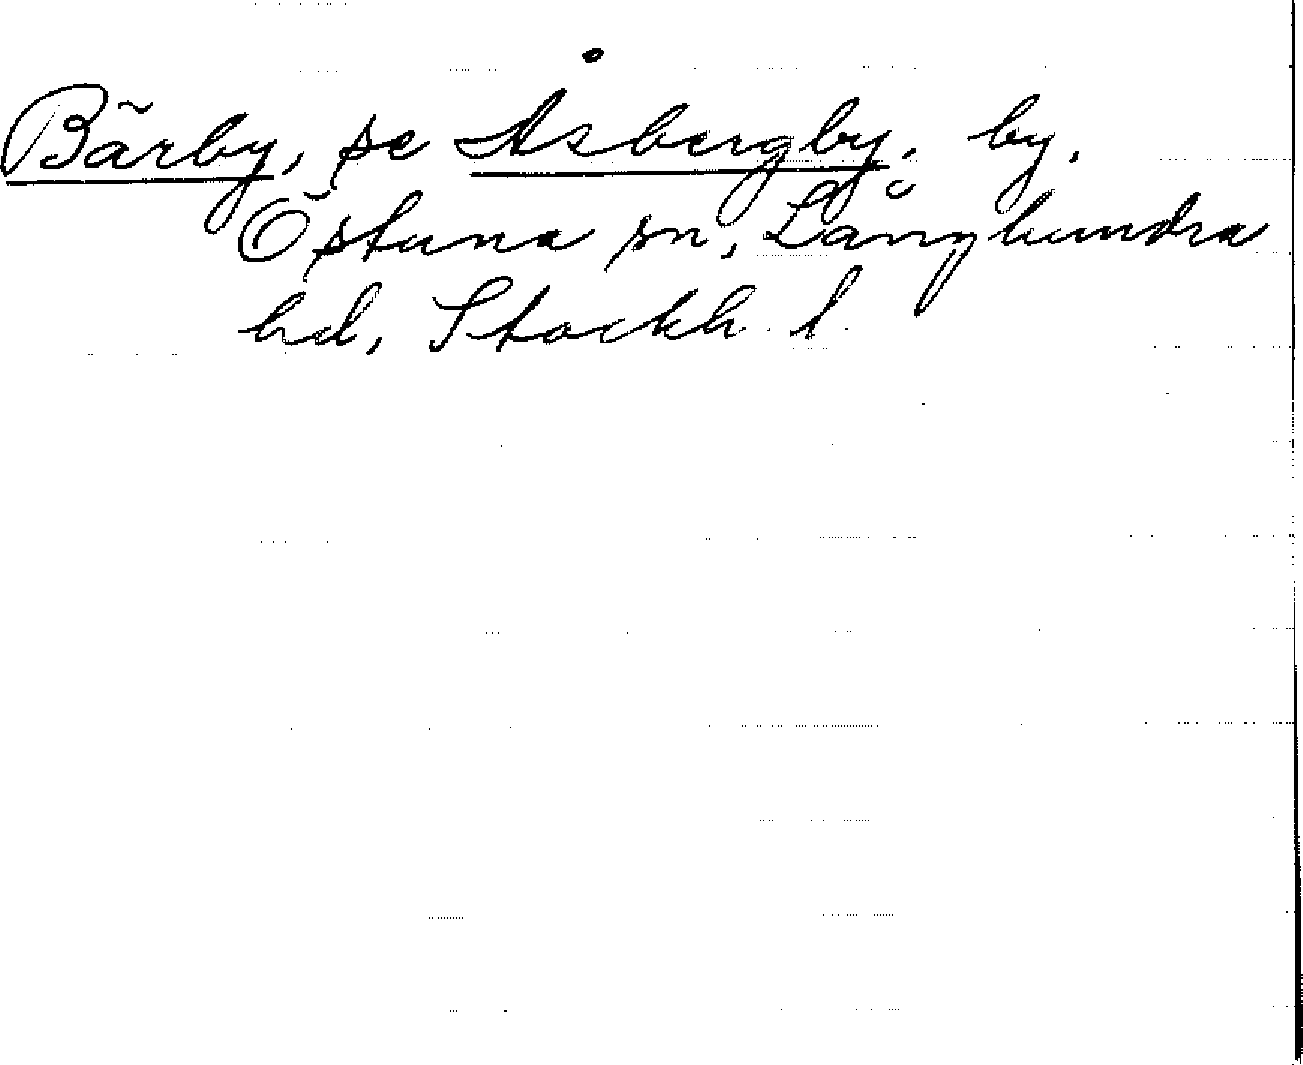 Bärby, se Åsbergby, by,
Östuna sn, Långhundra
hd, Stockh. l.